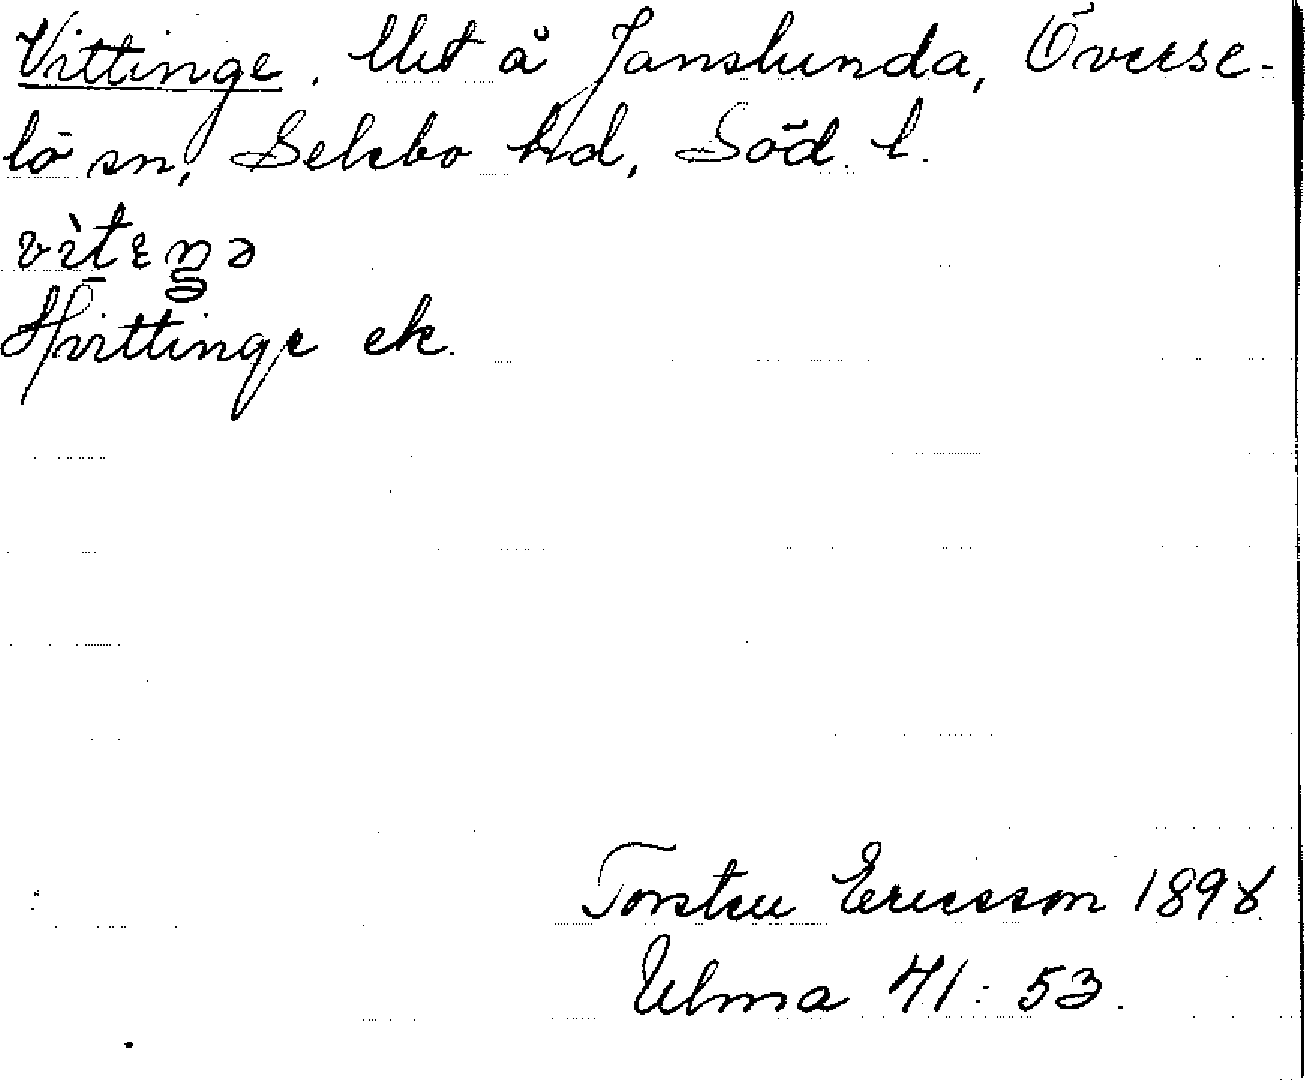 Vittinge. Utst å Janslunda, Överse-
lö sn, Selebo hd, Söd. l.
vìtɛŋə
Hvittinge ek.
Torsten Ericsson 1898
Ulma 71:53.